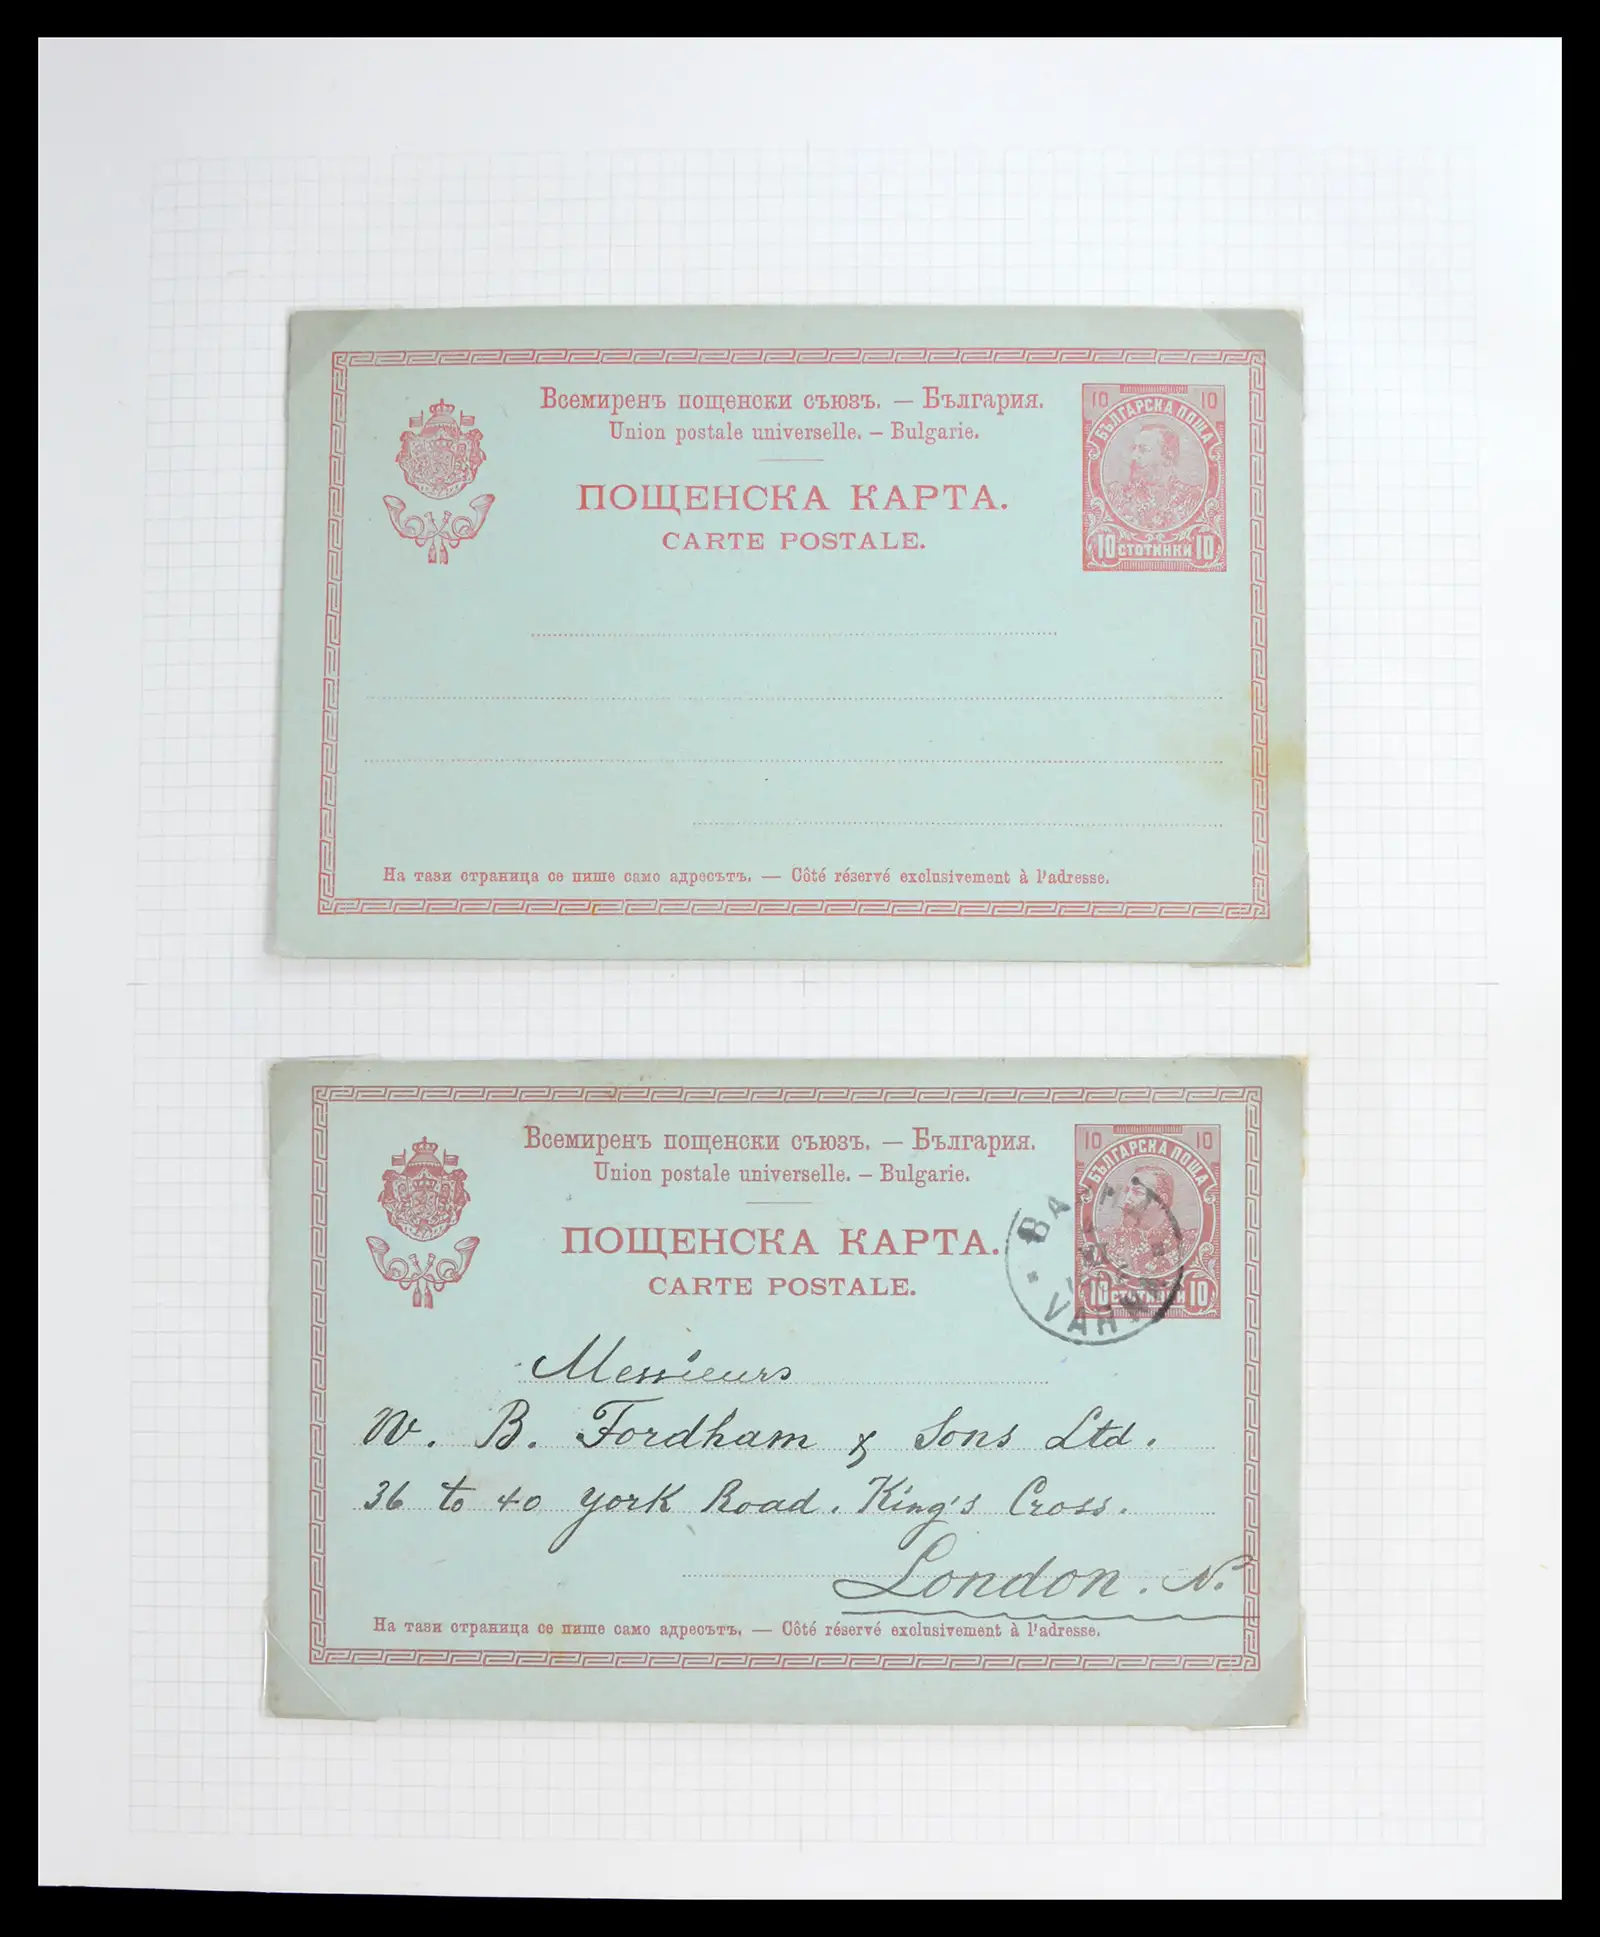 Всемиренъ пощенски съюзъ. — България.
Union postale universelle. — Bulgarie.
ПОЩЕНСКА КАРТА.
CARTE POSTALE.
10 10
БЪЛГАРСКА ПОЩА
10 СТОТИНКИ 10
На тази страница се пише само адресътъ. — Côté réservé exclusivement à l'adresse.
Всемиренъ пощенски съюзъ. — България.
Union postale universelle. — Bulgarie.
ПОЩЕНСКА КАРТА.
CARTE POSTALE.
10 10
БЪЛГАРСКА ПОЩА
10 СТОТИНКИ 10
Messieurs
W. B. Fordham & Sons Ltd.
36 to 40 York Road. King's Cross.
London. N.
На тази страница се пише само адресътъ. — Côté réservé exclusivement à l'adresse.